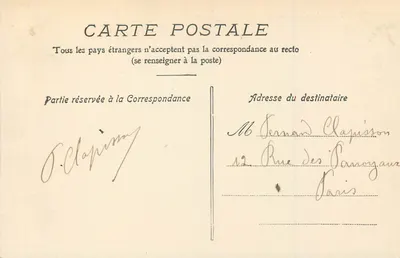 CARTE POSTALE
Tous les pays étrangers n'acceptent pas la correspondance au recto
(se renseigner à la poste)
Partie réservée à la Correspondance
P. Clapisson
Adresse du destinataire
M Fernand Clapisson
12 Rue des Pannoyaux
Paris